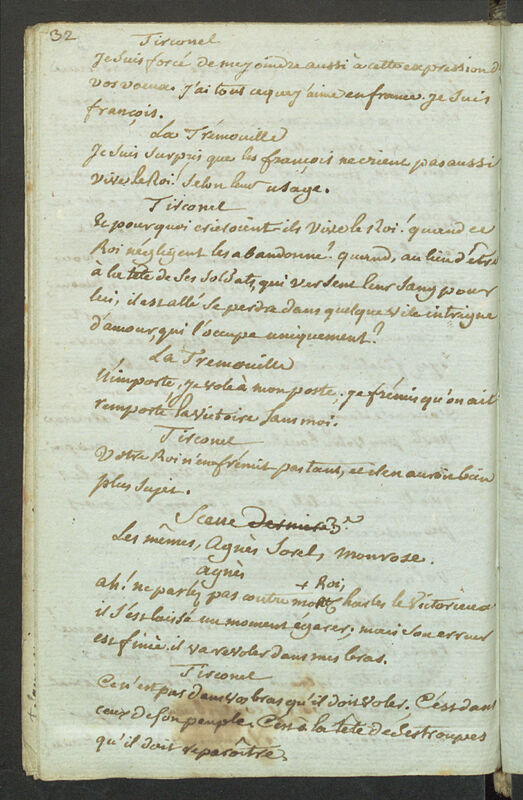 32
Tirconel
je suis forcé de me joindre aussi à cette expression d
vos voeux. j'ai tout ce que j'aime en france. je suis
françois.
La Trémouille
je suis surpris que les françois ne crient pas aussi
vive le Roi! selon leur usage.
Tirconel
Et pourquoi crieroient ils vive le Roi! quand ce
Roi négligent les abandonne? quand, au lieu d'être
à la tête de ses soldats, qui versent leur sang pour
lui, il est allé se perdre dans quelque vile intrigue
d'amour, qui l'occupe uniquement?
La Tremouille
N'importe, je vole à mon poste, je frémis qu'on ait
remporté la victoire sans moi.
Tirconel
Votre Roi n'en frémit pas tant, et il en auroit bien
plus sujet.
Scene derniere 3.e
Les mêmes, Agnès Sorel, Monrose.
agnès
+ Roi,
ah! ne parlez pas contre mon Charles le Victorieux
il s'est laissé un moment égarer, mais son erreur
est finie. il va revoler dans mes bras.
Tirconel
Ce n'est pas dans vos bras qu'il doit voler. C'est dans
ceux de son peuple. C'est à la tête de ses troupes
qu'il doit reparoître.